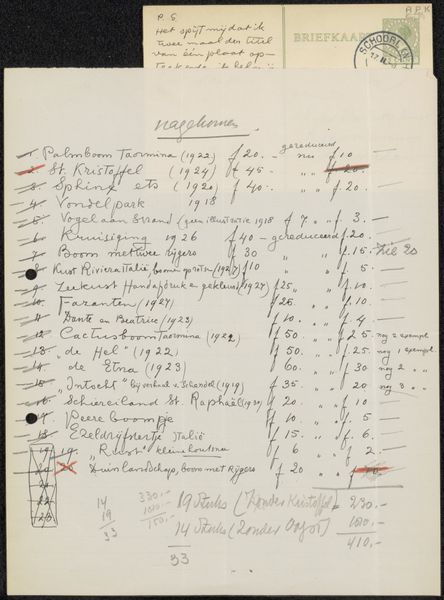 P.S.
Het spijt mij dat ik
twee maal den titel
van één plaat op-
BRIEFKAART
SCHOORL
nagekomen
1. Palmboom Taormina (1922) f 20.- gereduceerd nu f 10
2. St. Kristoffel (1924) f 45 - " " f 20
3. Sphinx ets (1920) f 40.- " " f. 20.
4. Vondelpark 1918
5. Vogel aan Strand (geen illustratie 1918 f 7 " " f 3. -
6. Kruisiging 1926 f 40 - gereduceerd f. 20.
7. Boom met twee rijgers f 30 " " f. 15 -
8. Kust Riviera Italië, boomen (1927) f 10 " f 5.
9. Zeekust Handafdruk en gekleurd (1927) f 25 " " f 10.
10. Faranten (1927) f 25. " f 10.
11. Dante en Beatrice (1923) f 10 " f. 4
12. Cactusboom Taormina (1922) f 50 " " f. 25 " nog 2 exempl
13. "de Hel" (1922) f 50. " " f. 25. nog 1 exempl
14. de Etna (1923) f 60 " f 30 nog 2 "
15. "Intocht" bij verhaal v. (1919) f 35. " f 20 nog 3 "
16. Schiereiland St. Raphaël (1920) f 20. " " f. 10.
17. Peereboompje f 10. " f 5.
18. Ezeldrijfstertje Italië f 15. " f. 6.
19 19. "Rust" klein houtsnee f 6 " f 2.
20 20 Duinlandschap, boom met Rijgers f 20 " f
22
23
14 330.- 19 stuks (Zonder Kristoffel = 230.-
19 100.- 14 stuks (Zonder
33 410.-
33